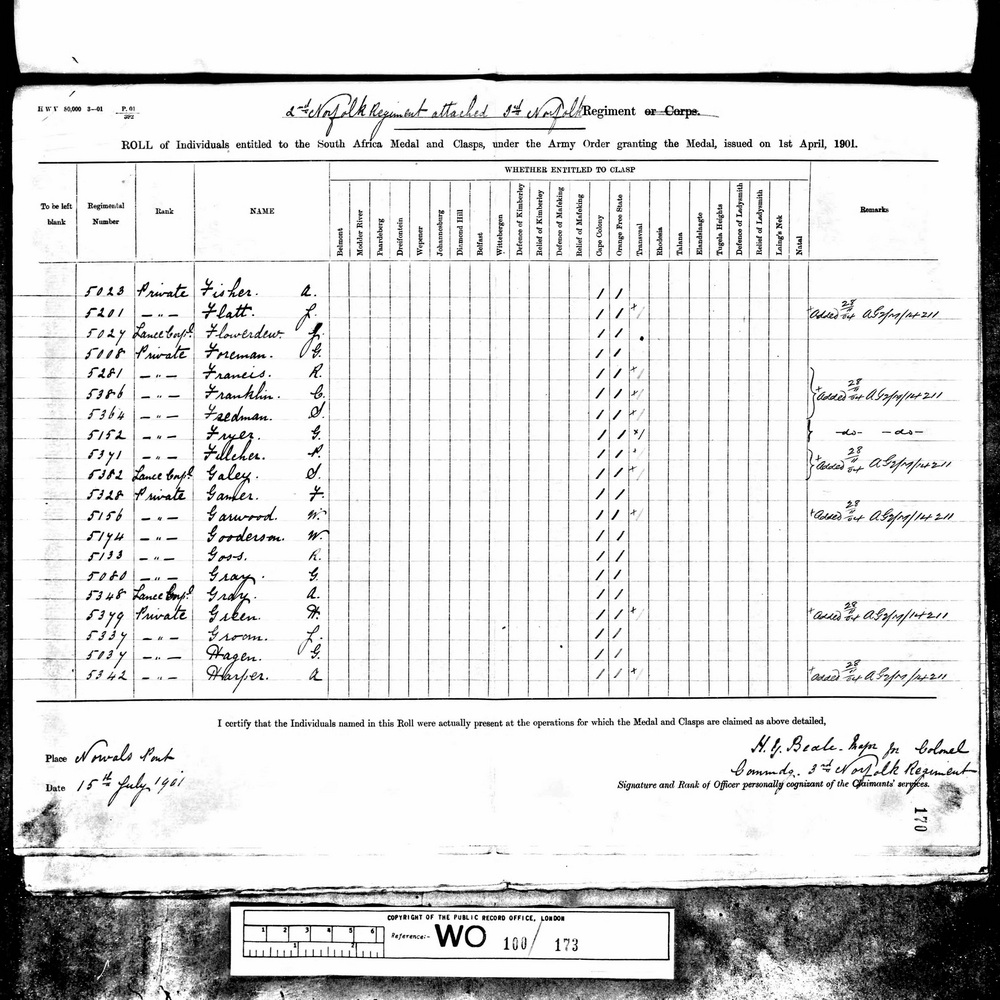 H W V 80,000 3—01 P. 01
2nd Norfolk Regiment attached 3rd Norfolk Regiment or Corps.
ROLL of Individuals entitled to the South Africa Medal and Clasps, under the Army Order granting the Medal, issued on 1st April, 1901.
WHETHER ENTITLED TO CLASP
To be left blank Regimental Number Rank NAME Belmont Modder River Paardeberg Dreifontein Wepener Johannesburg Diamond Hill Belfast Wittebergen Defence of Kimberley Relief of Kimberley Defence of Mafeking Relief of Mafeking Cape Colony Orange Free State Transvaal Rhodesia Talana Elandslaagte Tugela Heights Defence of Ladysmith Relief of Ladysmith Laing's Nek Natal Remarks
5023 Private Fisher. A. / /
5201 —"— Flatt. J. / / x/ +Added 28/11/04 AG2/M/14211
5027 Lance Corpl. Flowerdew. J. / /
5008 Private Foreman. G. / /
5281 —"— Francis. R. / / x/
5386 —"— Franklin. C. / / x/ +Added 28/11/04 AG2/M/14211
5364 —"— Fredman. S. / / x/
5152 —"— Fryer. G. / / x/ —do— —do—
5371 —"— Fulcher. R. / / x
5382 Lance Corpl. Galey. S. / / x +Added 28/11/04 AG2/M/14211
5328 Private Gamer. F. / /
5156 —"— Garwood. W. / / x/ +Added 28/11/04 AG2/M/14211
5174 —"— Gooderson. W. / /
5133 —"— Goss. R. / /
5080 —"— Gray. G. / /
5348 Lance Corpl. Gray. A. / /
5379 Private Green. H. / / x +Added 28/11/04 AG2/M/14211
5337 —"— Groom. J. / /
5037 —"— Hagen. G. / /
5342 —"— Harper. A / / x/ +Added 28/11/04 AG2/M/14211
I certify that the Individuals named in this Roll were actually present at the operations for which the Medal and Clasps are claimed as above detailed,
Place Norvals Pont
Date 15th July 1901
H. G. Beale. Major for Colonel
Commdg. 3rd Norfolk Regiment
Signature and Rank of Officer personally cognizant of the Claimants' services.
170
COPYRIGHT OF THE PUBLIC RECORD OFFICE, LONDON
1 2 3 4 5 6
1 2
Reference:- WO 100/ 173